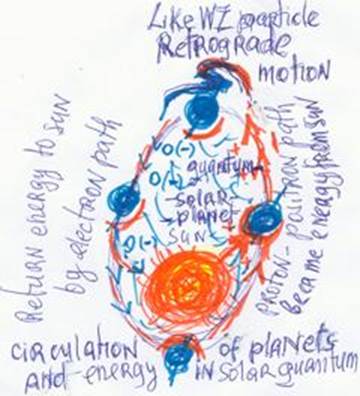 Like WZ particle
Retrograde
motion
Return energy to sun
by electron path
O(-)
quantum
O(-)
-solar-
planet
SUN
O(-)
proton-positron path
became energy from sun
circulation of planets
and energy in solar quantum